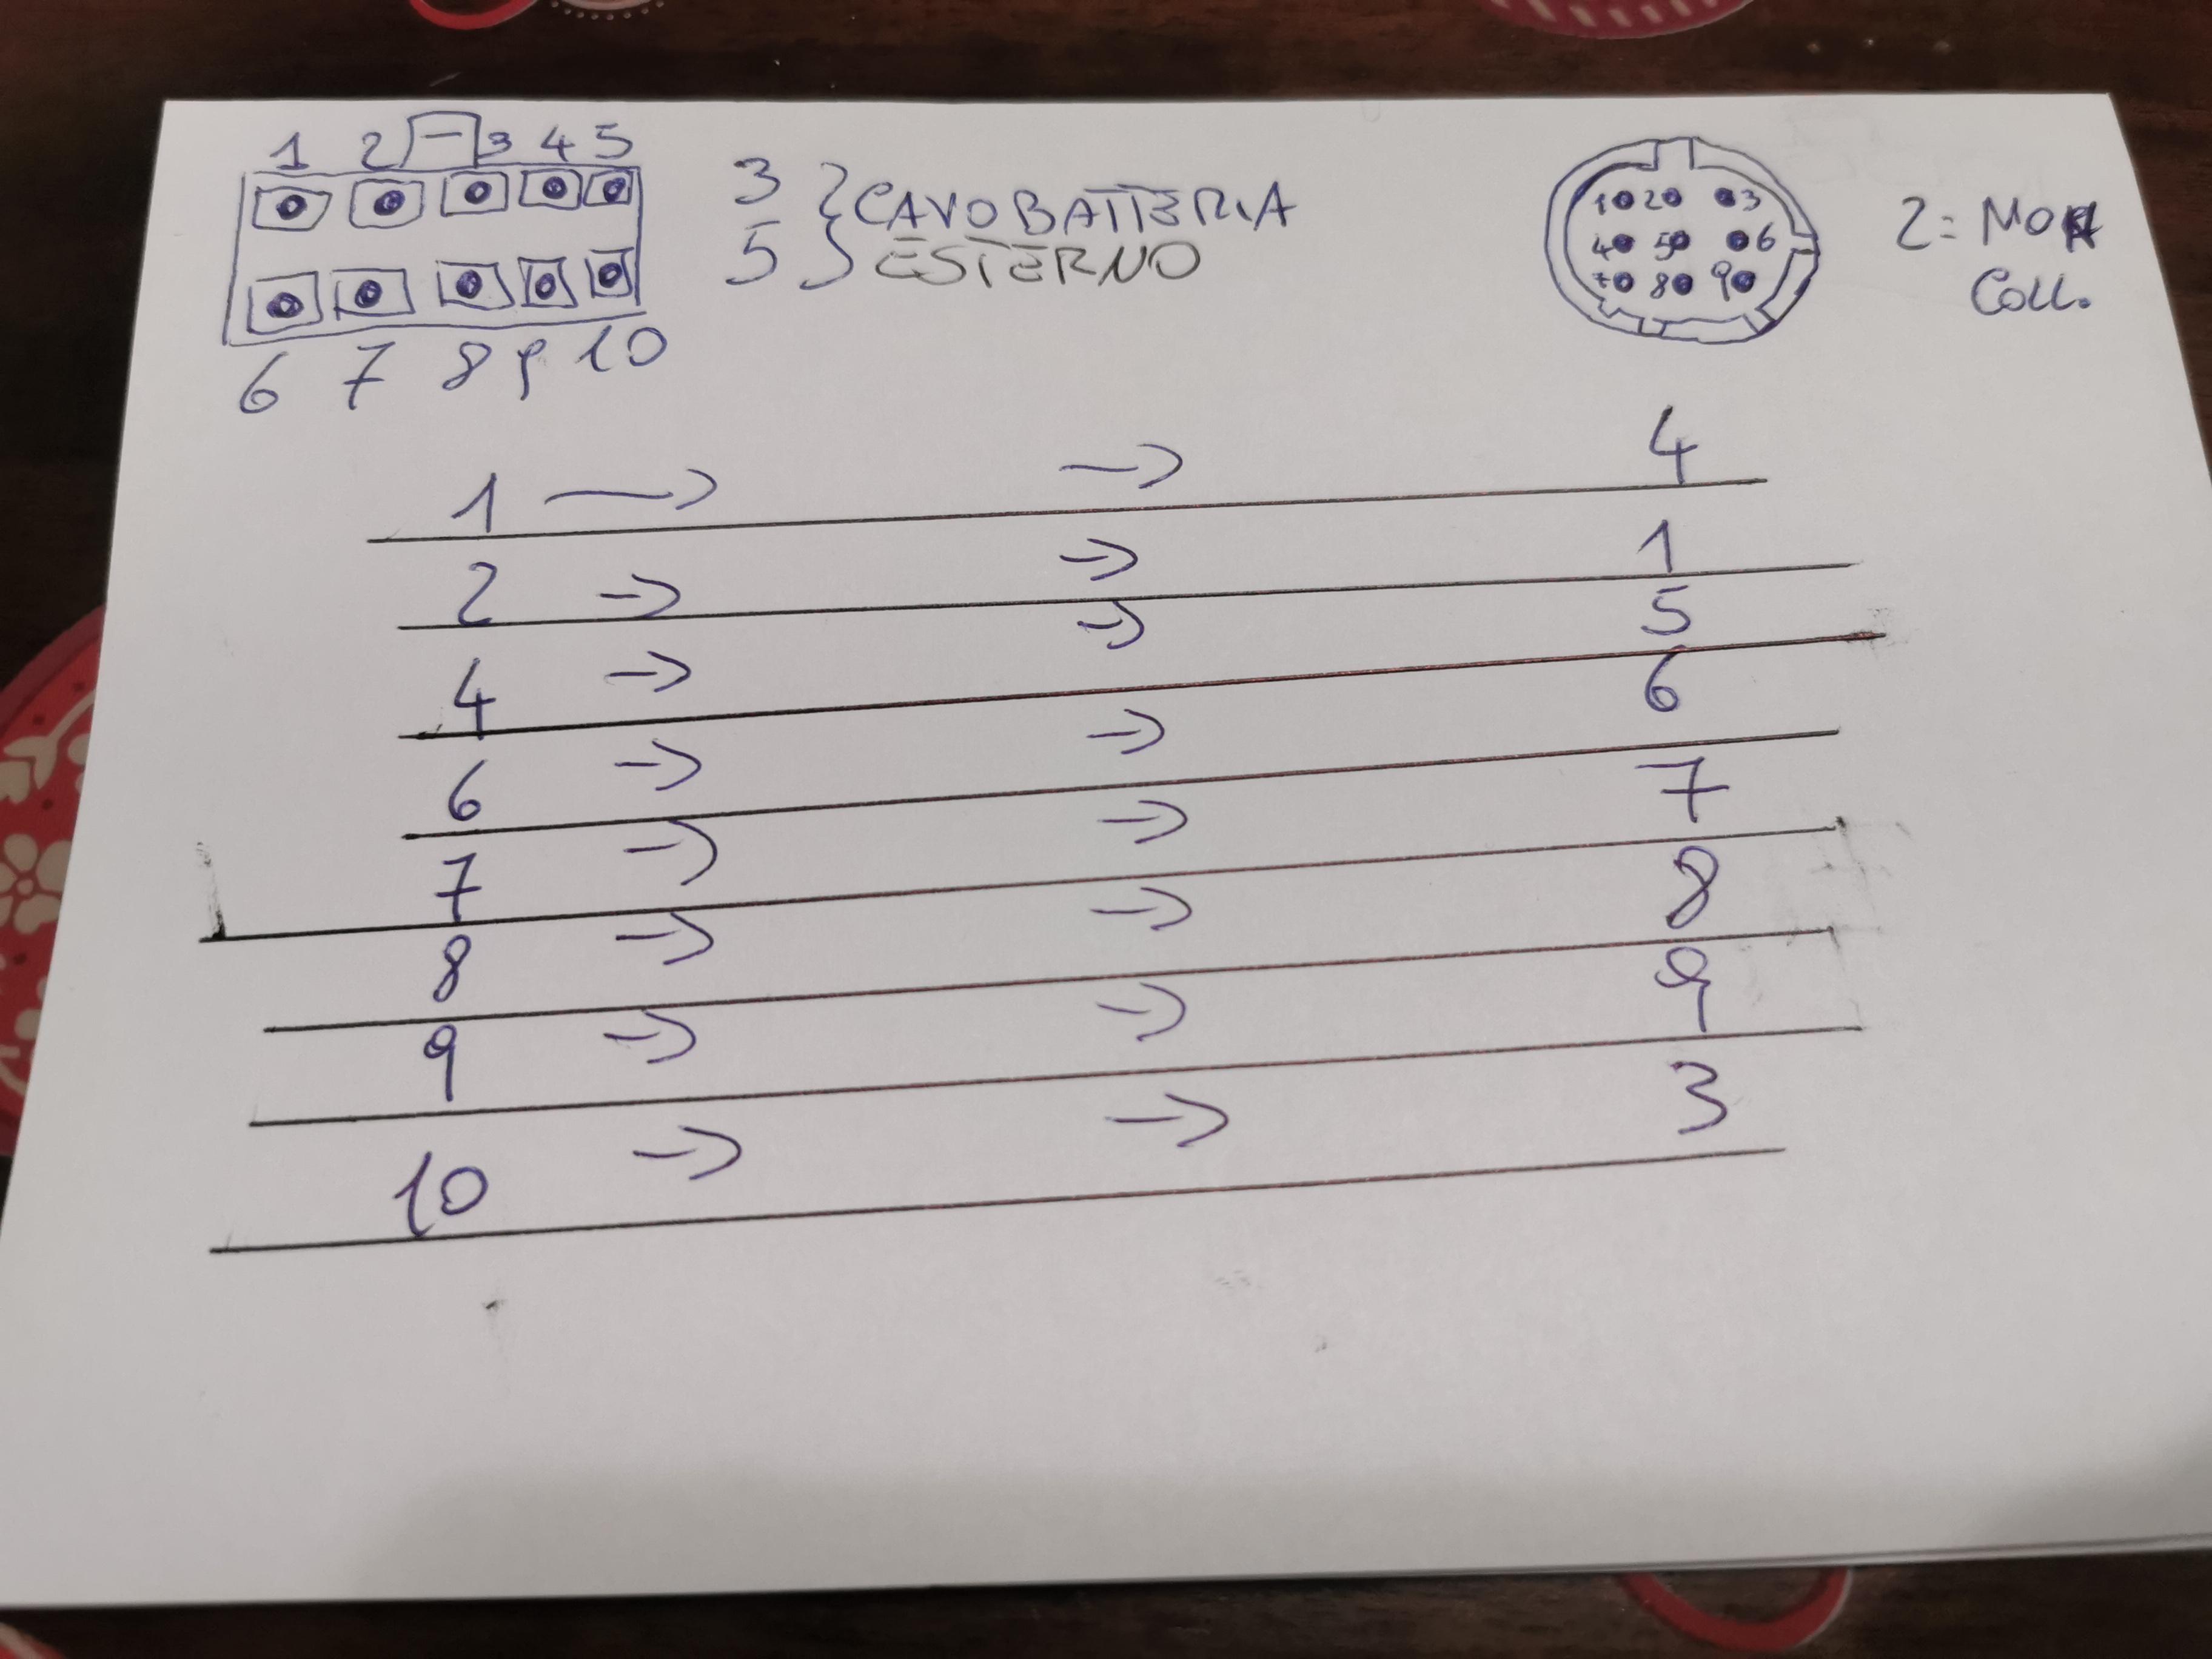 1 2 3 4 5
6 7 8 9 10
3
5
CAVO BATTERIA
ESTERNO
1 2 3
4 5 6
7 8 9
2 = NON
COLL.
1 → → 4
2 → → 1
4 → → 5
6 → → 6
7 → → 7
8 → → 8
9 → → 9
10 → → 3